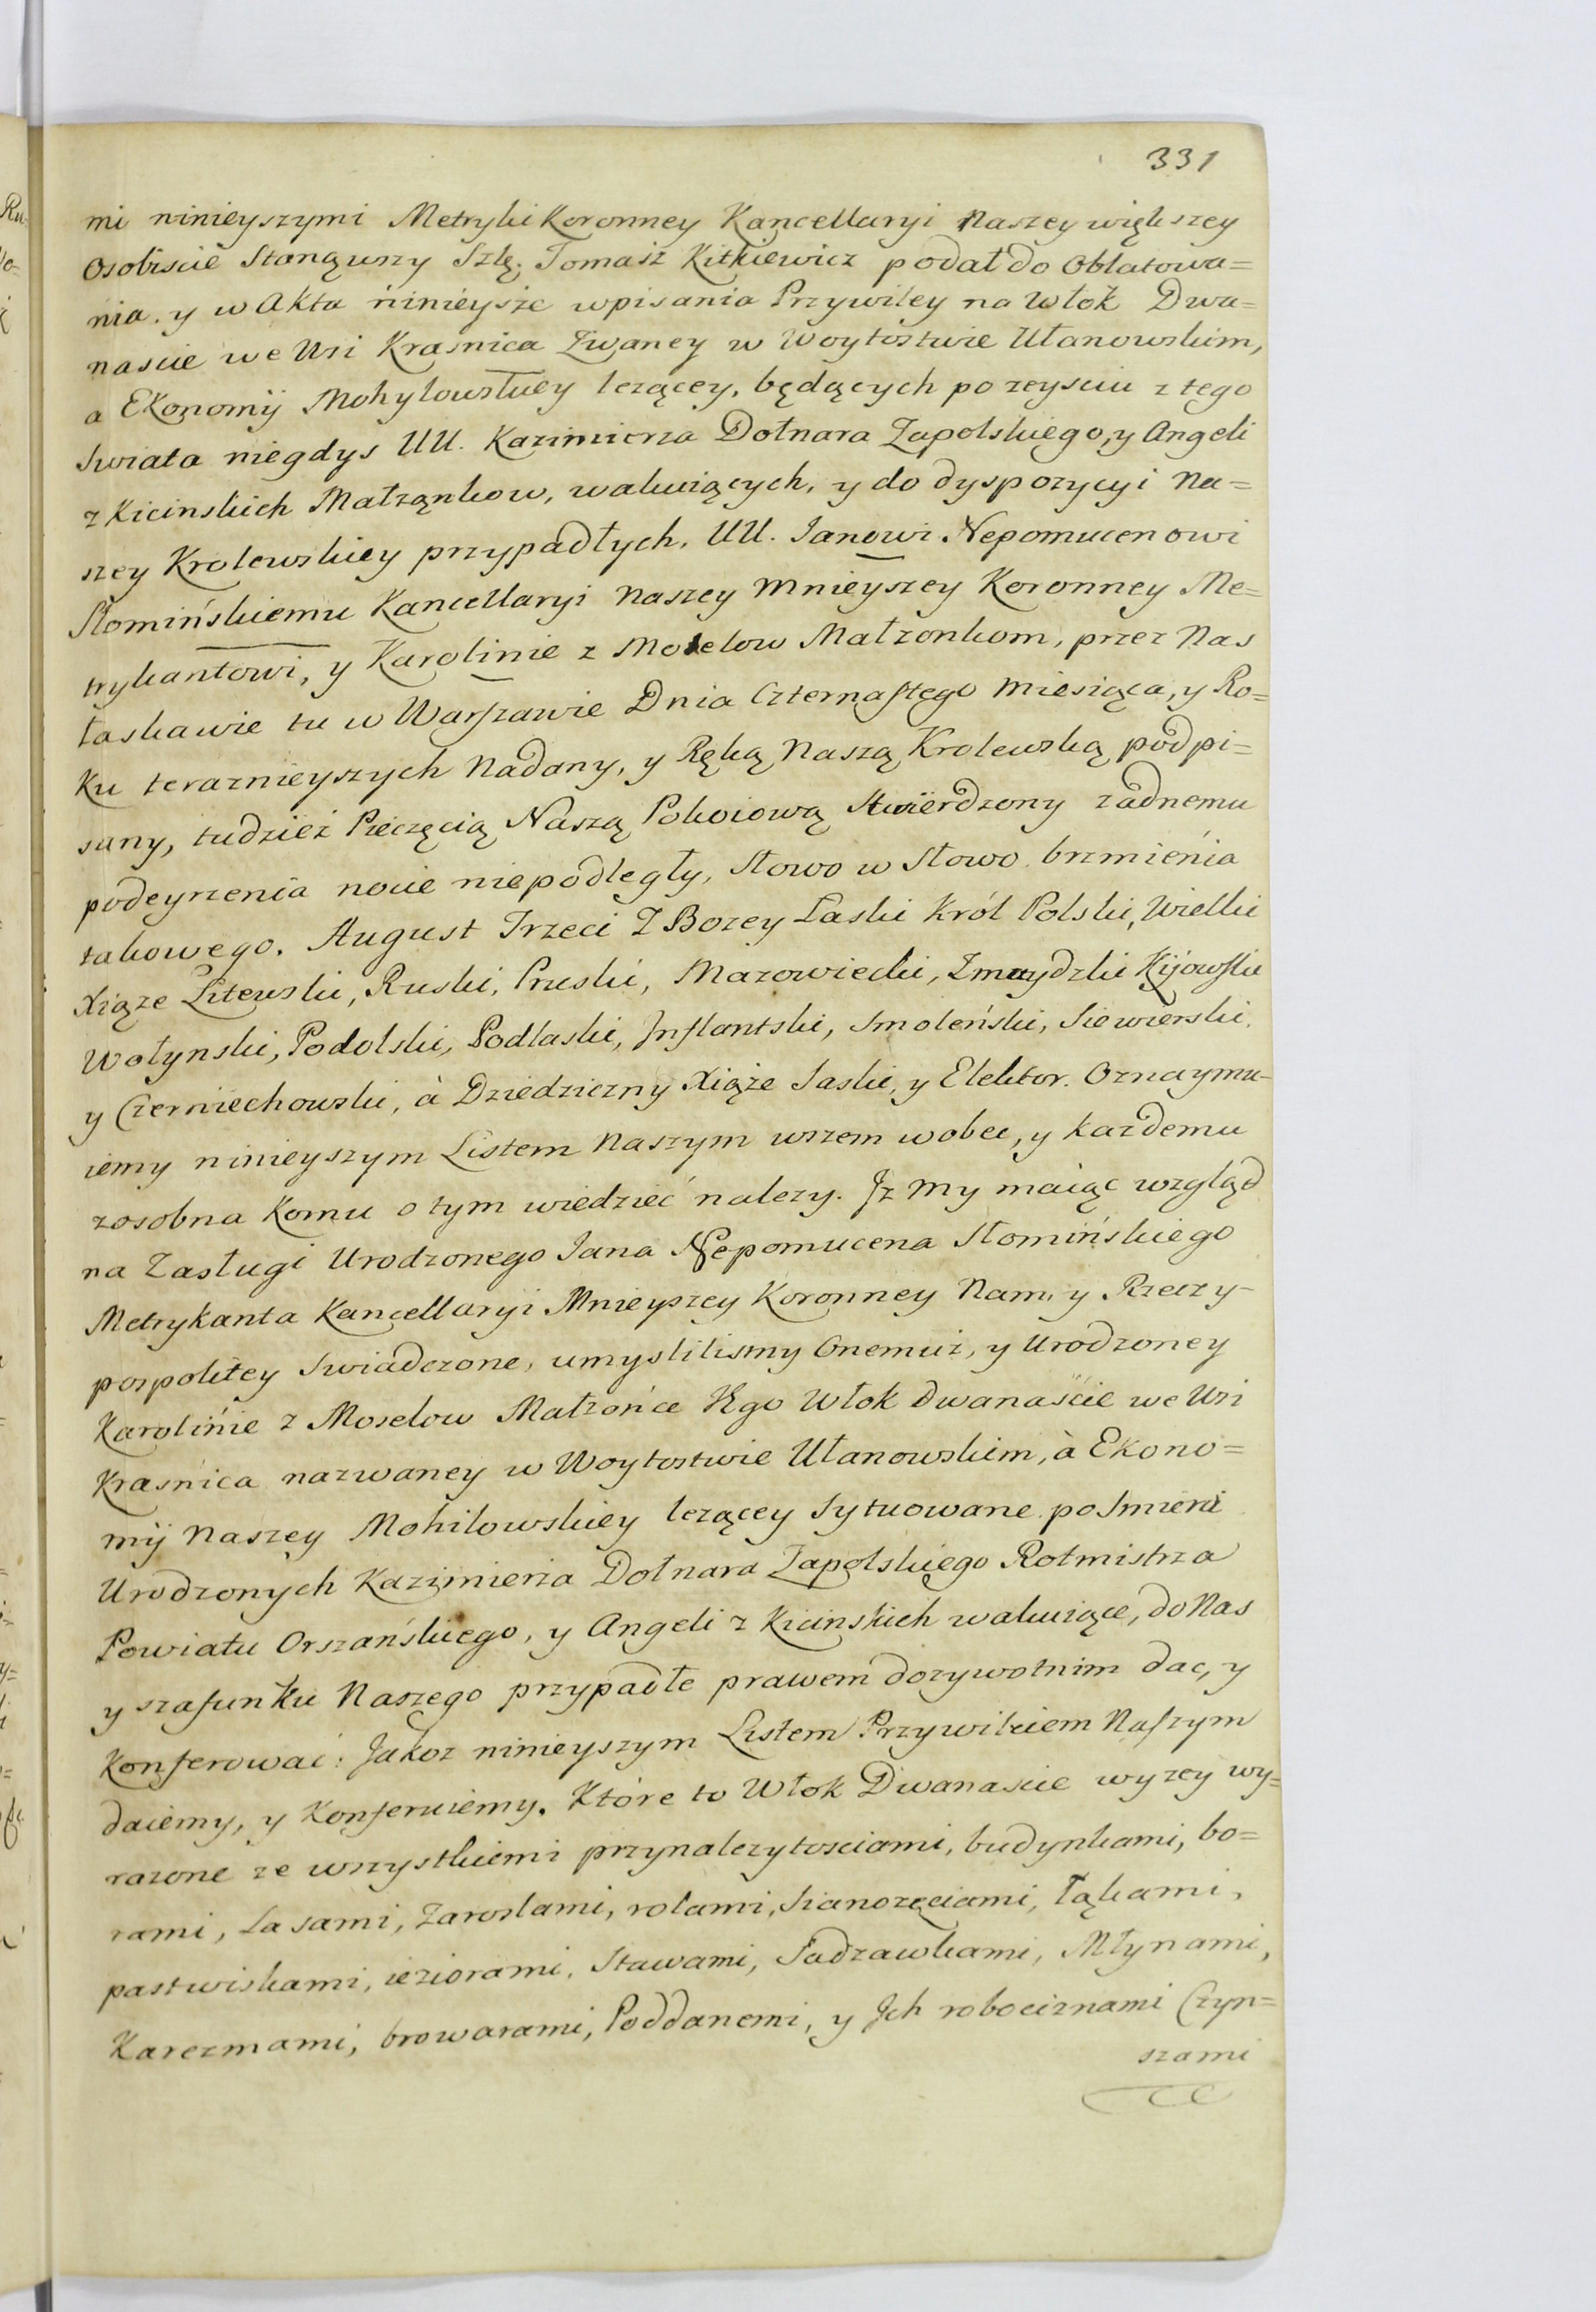 331
mi ninieyszymi Metryki Koronney Kancellaryi Naszey większey
Osobiscie Stanąwszy Szlę. Tomasz Kitkiewicz podał do Oblatowa=
nia. y w Akta ninieysze wpisania Przywiley na Włok Dwa=
nascie we Wsi Krasnica Zwaney w Woytostwie Ułanowskim,
a Ekonomij Mohylowskiey lezącey, będących po zeysciu z tego
Swiata niegdys UU. Kazimierza Dołnara Zapolskiego, y Angeli
z Kicinskich Małząnkow, wakuiących, y do dyspozycyi Na=
szey Krolewskiey przypadłych, UU. Janowi Nepomucenowi
Słomińskiemu Kancellaryi Naszey Mnieyszey Koronney Me=
trykantowi, y Karolinie z Moselow Małzonkom, przez Nas
łaskawie tu w Warszawie Dnia Czternastego Miesiąca, y Ro=
ku terazniejszych Nadany, y Ręką Naszą Krolewską podpi=
sany, tudziez Pieczęcią Naszą Pokoiową Stwierdzony zadnemu
podeyrzenia nocie niepodległy, Słowo w Słowo brzmienia
takowego. August Trzeci Z Bozey Łaski Król Polski, Wielki
Xiąze Litewski, Ruski, Pruski, Mazowiecki, Zmuydzki Kijowski
Wołynski, Podolski, Podlaski, Inflantski, Smoleński, Siewierski,
y Czerniechowski, à Dziedziczny Xiąże Saski, y Elektor. Oznaymu-
iemy ninieyszym Listem Naszym wszem wobec, y kazdemu
zosobna Komu o tym wiedzieć nalezy. Jz My maiąc wzgląd
na Zasługi Urodzonego Jana Nepomucena Słomińskiego
Metrykanta Kancellaryi Mnieyszey Koronney Nam, y Rzeczy-
pospolitey Swiadczone, umyslilismy Onemuz, y Urodzoney
Karolinie z Moselow Małzońce Jego Włok dwanaście we Wsi
Kraśnica nazwaney w Woytostwie Ułanowskim, à Ekono=
mij Naszey Mohilowskiey lezącey Sytuowane po Smierci
Urodzonych Kazimierza Dołnara Zapolskiego Rotmistrza
Powiatu Orszańskiego, y Angeli z Kicinskich wakuiące, do Nas
y szafunku Naszego przypadłe prawem dozywotnim dac, y
Konferowac: Jakoz ninieyszym Listem Przywileiem Naszym
daiemy, y Konferuiemy. Które to Włok Dwanascie wyzey wy=
razone ze wszystkiemi przynalezytosciami, budynkami, bo=
rami, Lasami, Zaroslami, rolami, Sianozęciami, łąkami,
pastwiskami, ieziorami, Stawami, Sadzawkami, Młynami,
Karczmami, browarami, Poddanemi, y Jch robociznami Czyn=
szami